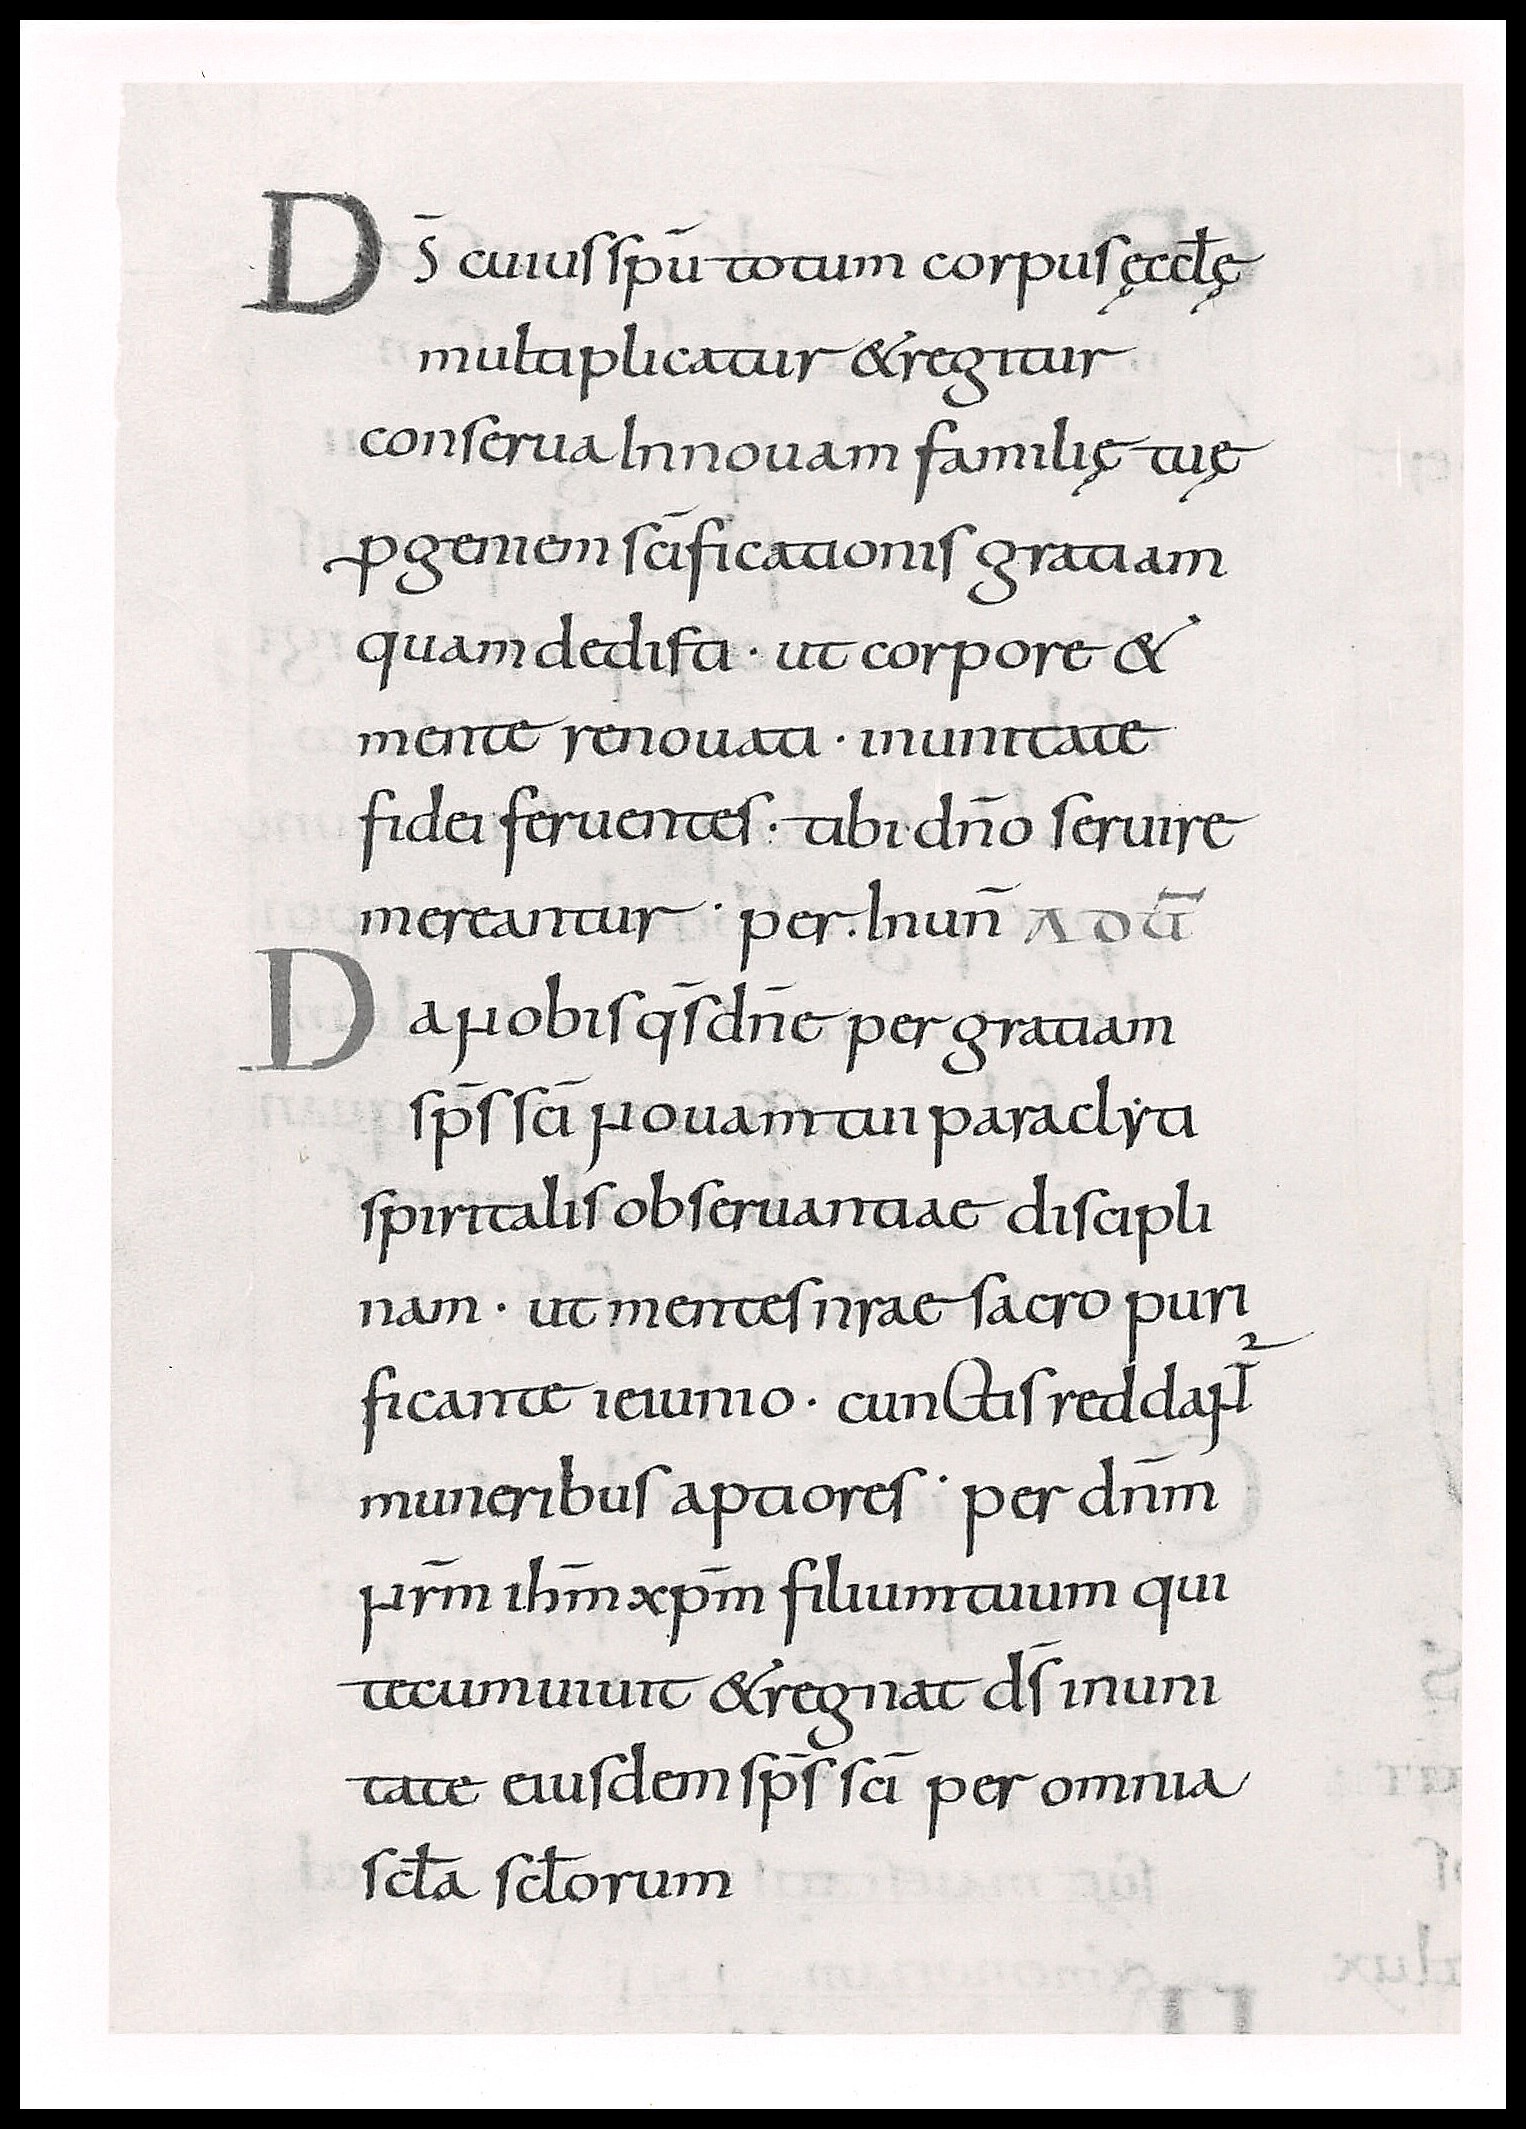 Ds̄ cuius spū totum corpus ęccłę
multiplicatur & regitur
conserua In nouam familię tuę
ꝓgeniem sc̄ificationis gratiam
quam dedisti · ut corpore &
mente renouati · in unitate
fidei feruentes · tibi dn̄o seruire
mereantur · per · In un̄ AD Ū
Da Nobis qs̄ dn̄e per gratiam
sp̄s sc̄i Nouam tui paraclẏti
spiritalis obseruantiae discipli
nam · ut mentes nrae sacro puri
ficante ieiunio · cunctis reddaNT²
muneribus aptiores · per dn̄m
Nr̄m ih̄m xp̄m filium tuum qui
tecum uiuit & regnat ds̄ in uni
tate eiusdem sp̄s sc̄i per omnia
scła scłorum